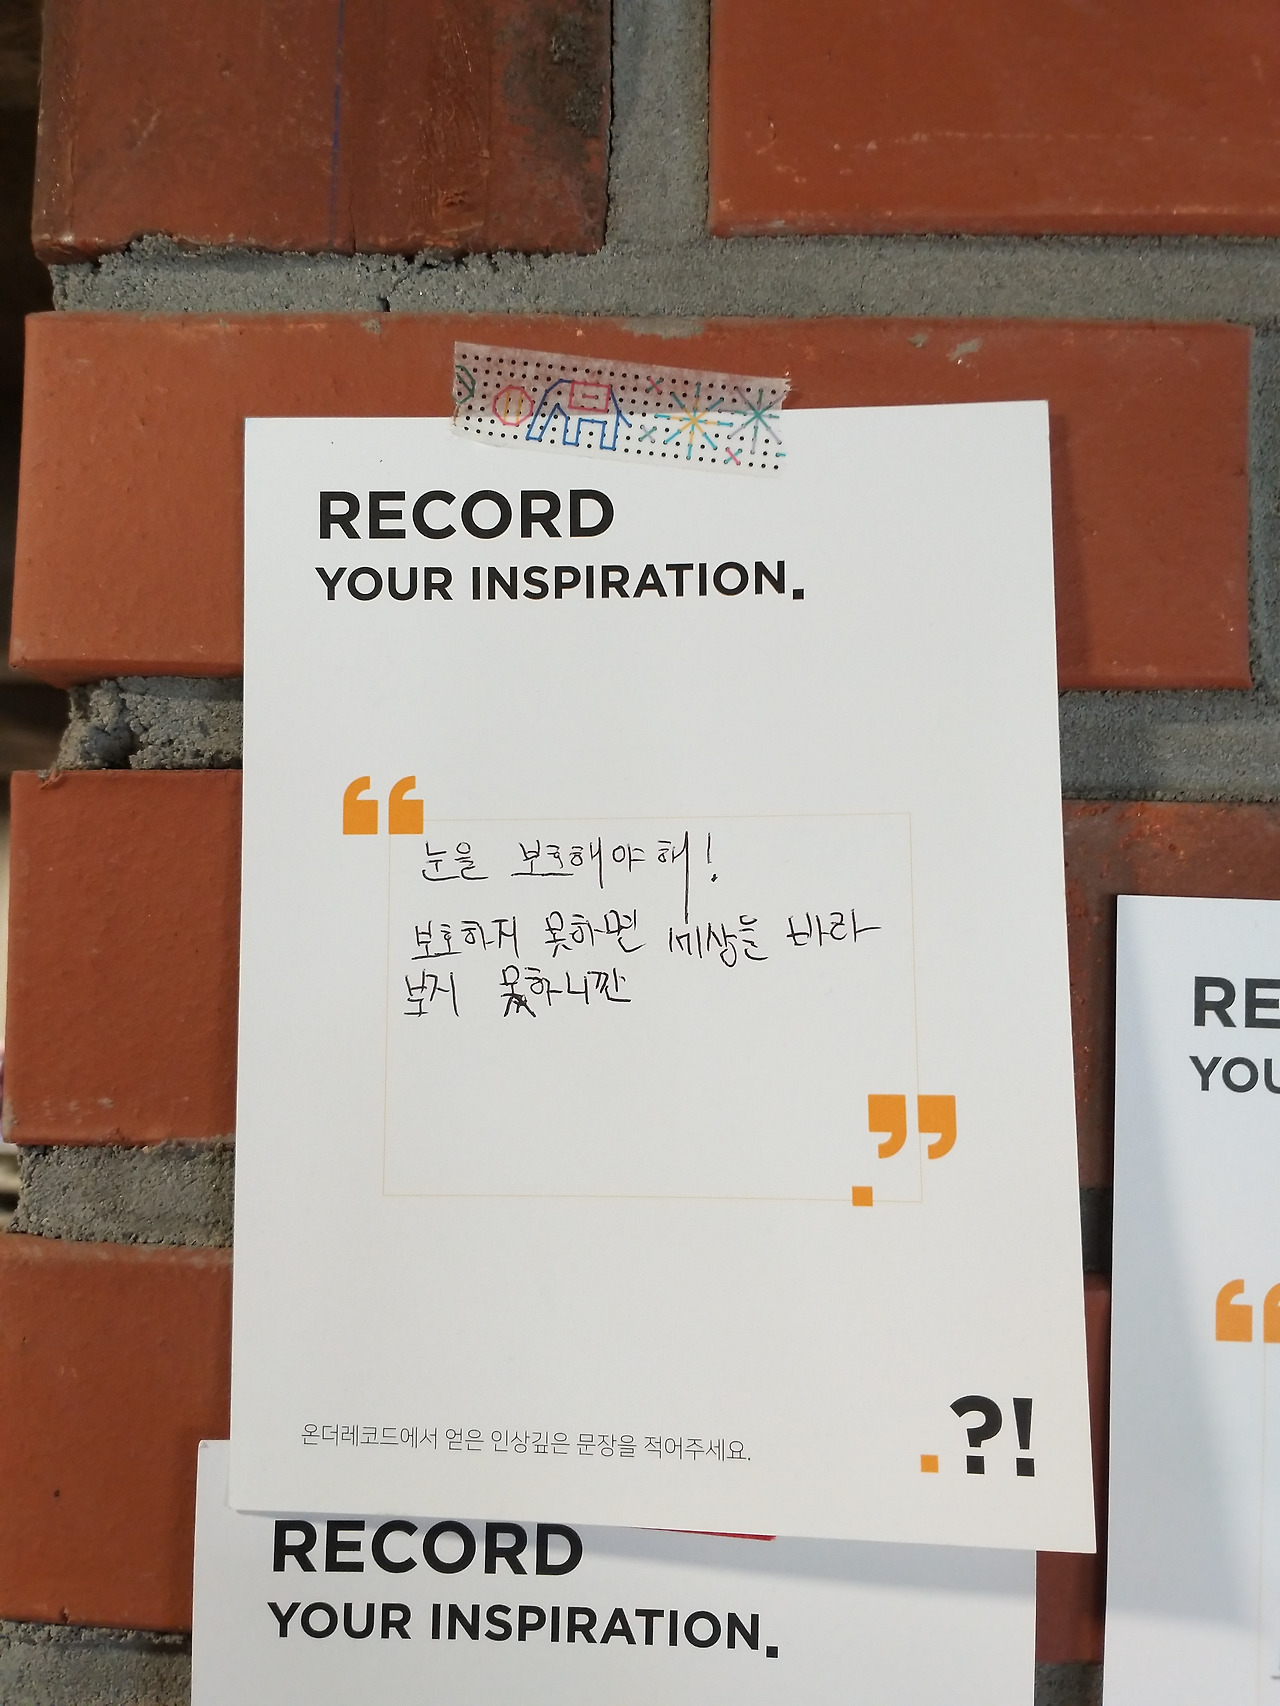 RECORD
YOUR INSPIRATION.
“
눈을 보호해야 해!
보호하지 못하면 세상을 바라
보지 못하니깐
”
온더레코드에서 얻은 인상깊은 문장을 적어주세요.
.?!
RECORD
YOUR INSPIRATION.
RE
YOU
“